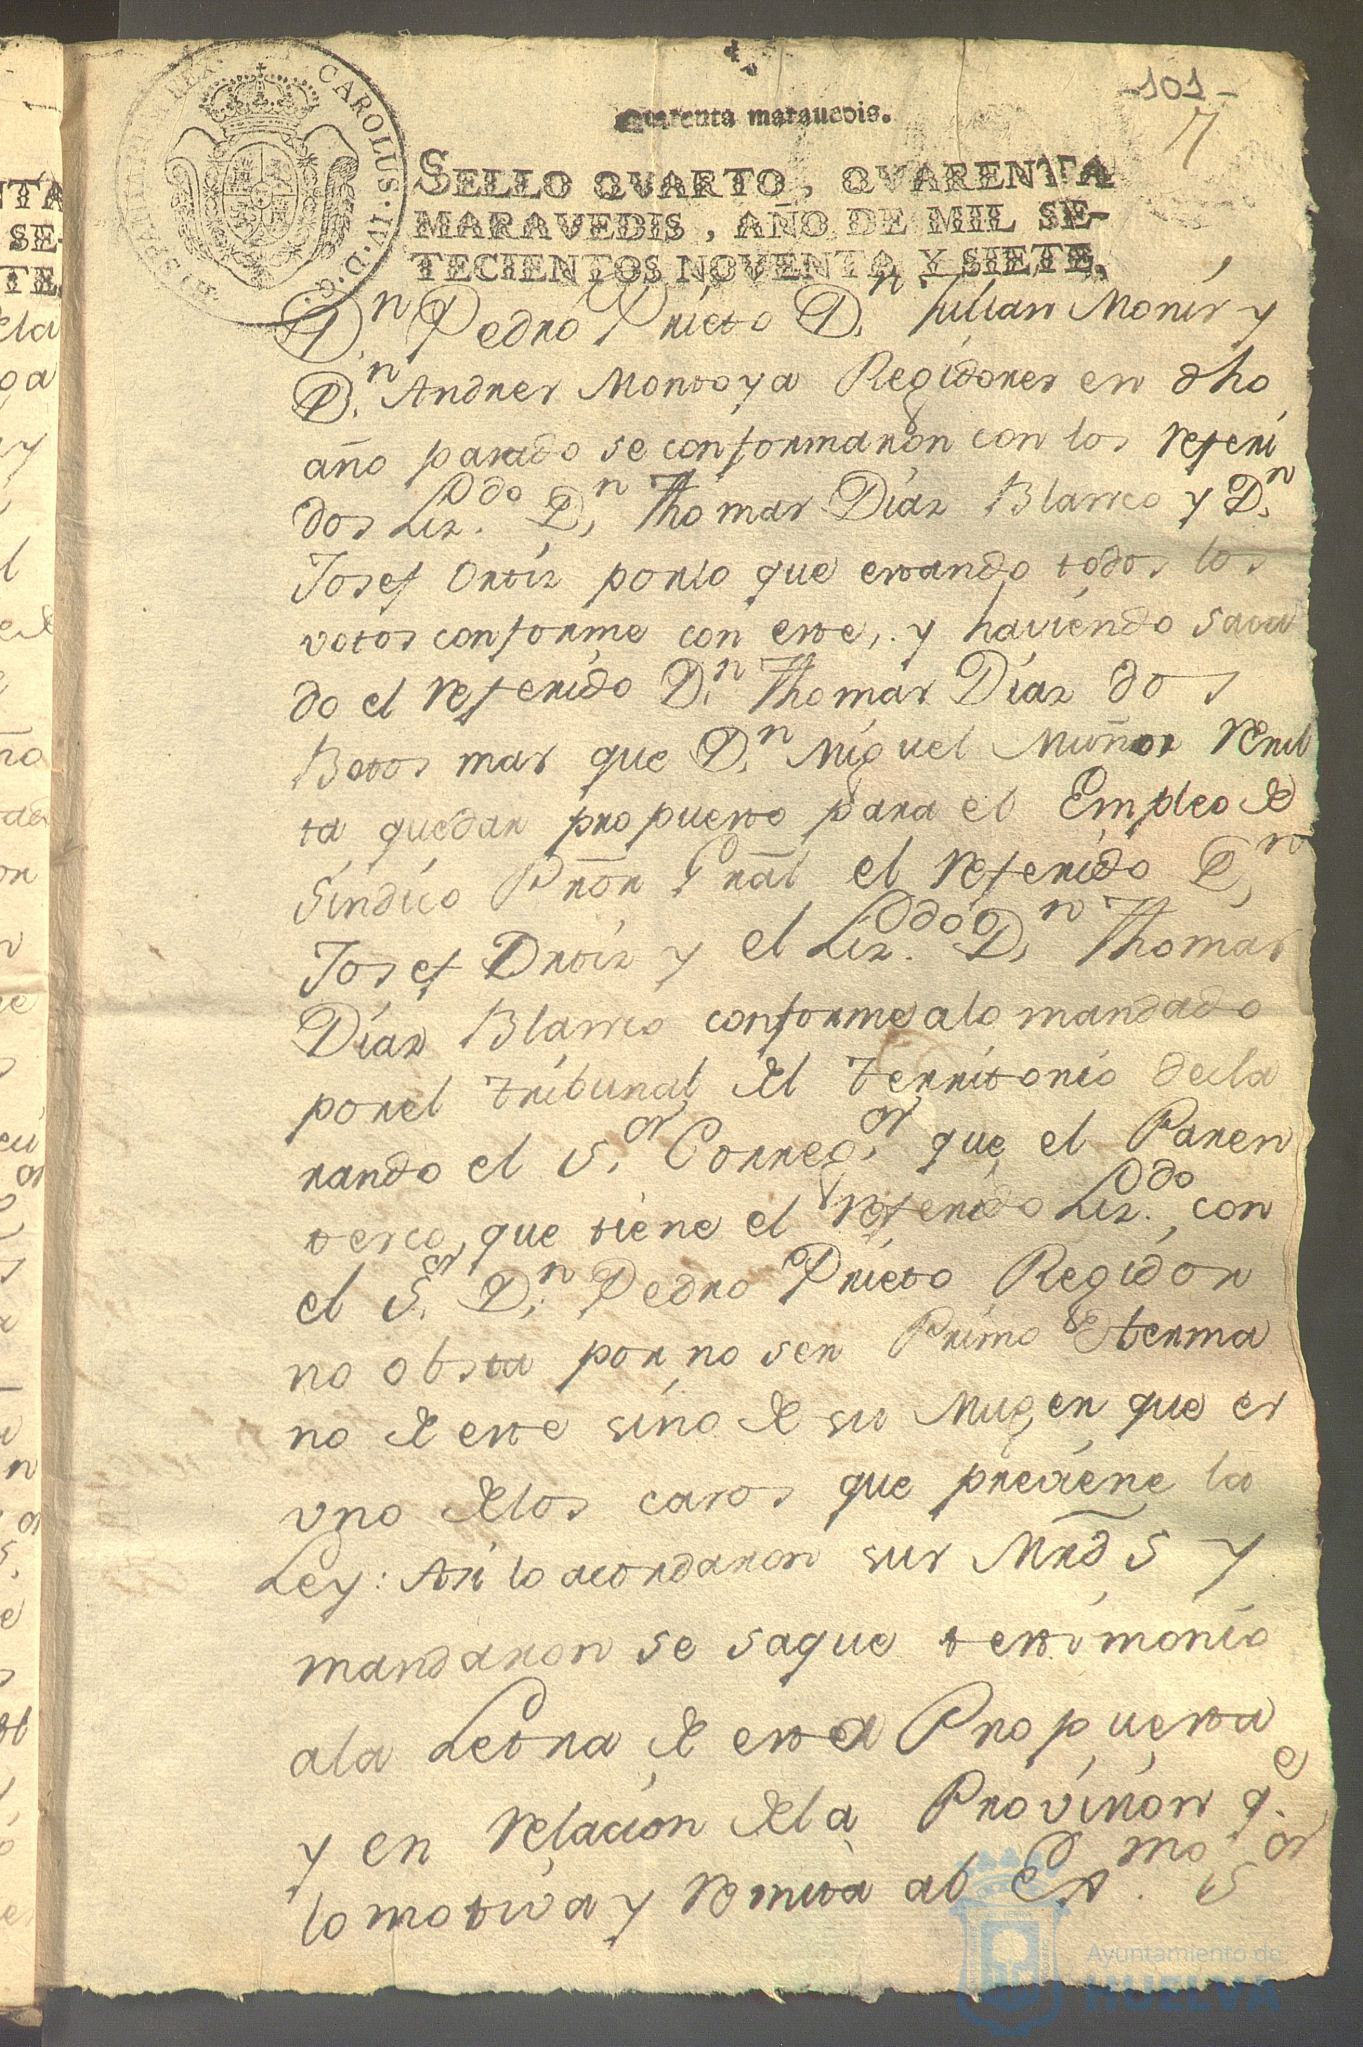 -101-
7
Quarenta marauedis.
HISPANIARUM REX. CAROLUS. IV. D. G.
SELLO QVARTO, QVARENTA
MARAVEDIS, AÑO DE MIL SE-
TECIENTOS NOVENTA Y SIETE.
D.n Pedro Prieto D.n Julian Monis y
D.n Andres Montoya Regidores en dho
año pasado se conformaron con los referi
dos Liz.do D.n Thomas Diaz Blanco y D.n
Josef Ortiz por lo que estando todos los
votos conforme con este, y haviendo saca
do el referido D.n Thomas Diaz dos
Botos mas que D.n Miguel Muñoz resul
ta quedar propuesto para el Empleo de
Sindico Prõr Grãl el referido D.n
Josef Ortiz y el Liz.do D.n Thomas
Diaz Blanco conforme alo mandado
por el tribunal del territorio decla
rando el S.or Correg.or que el Paren
tesco que tiene el referido Liz.do con
el S.or D.n Pedro Prieto Regidor
no obsta por no ser Primo Herma
no de este sino de su Muger que es
uno delos casos que previene la
Ley: Asi lo acordaron sus Mrd̃s y
mandaron se saque testimonio
ala Letra de esta Propuesta
y en relacion dela Provision q.e
lo motiva y remita al Ex.mo S.or
Ayuntamiento de
HUELVA